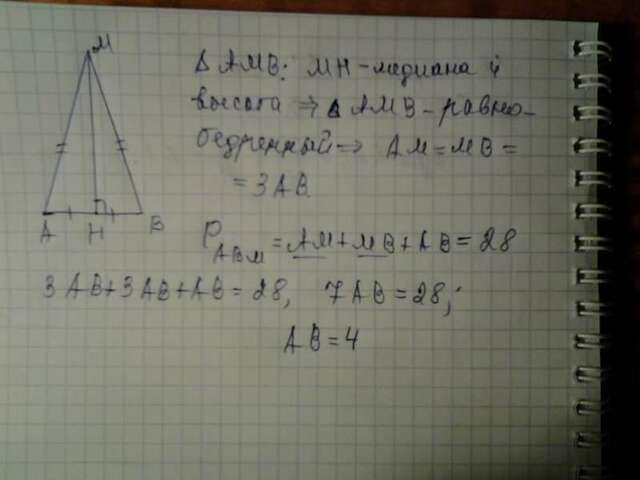 M
Δ AMB: MH-медиана и
высота ⇒ Δ AMB - равно-
бедренный ⇒ AM = MB =
= 3AB
A H B
P ABM = AM + MB + AB = 28
3AB + 3AB + AB = 28, 7AB = 28;
AB = 4